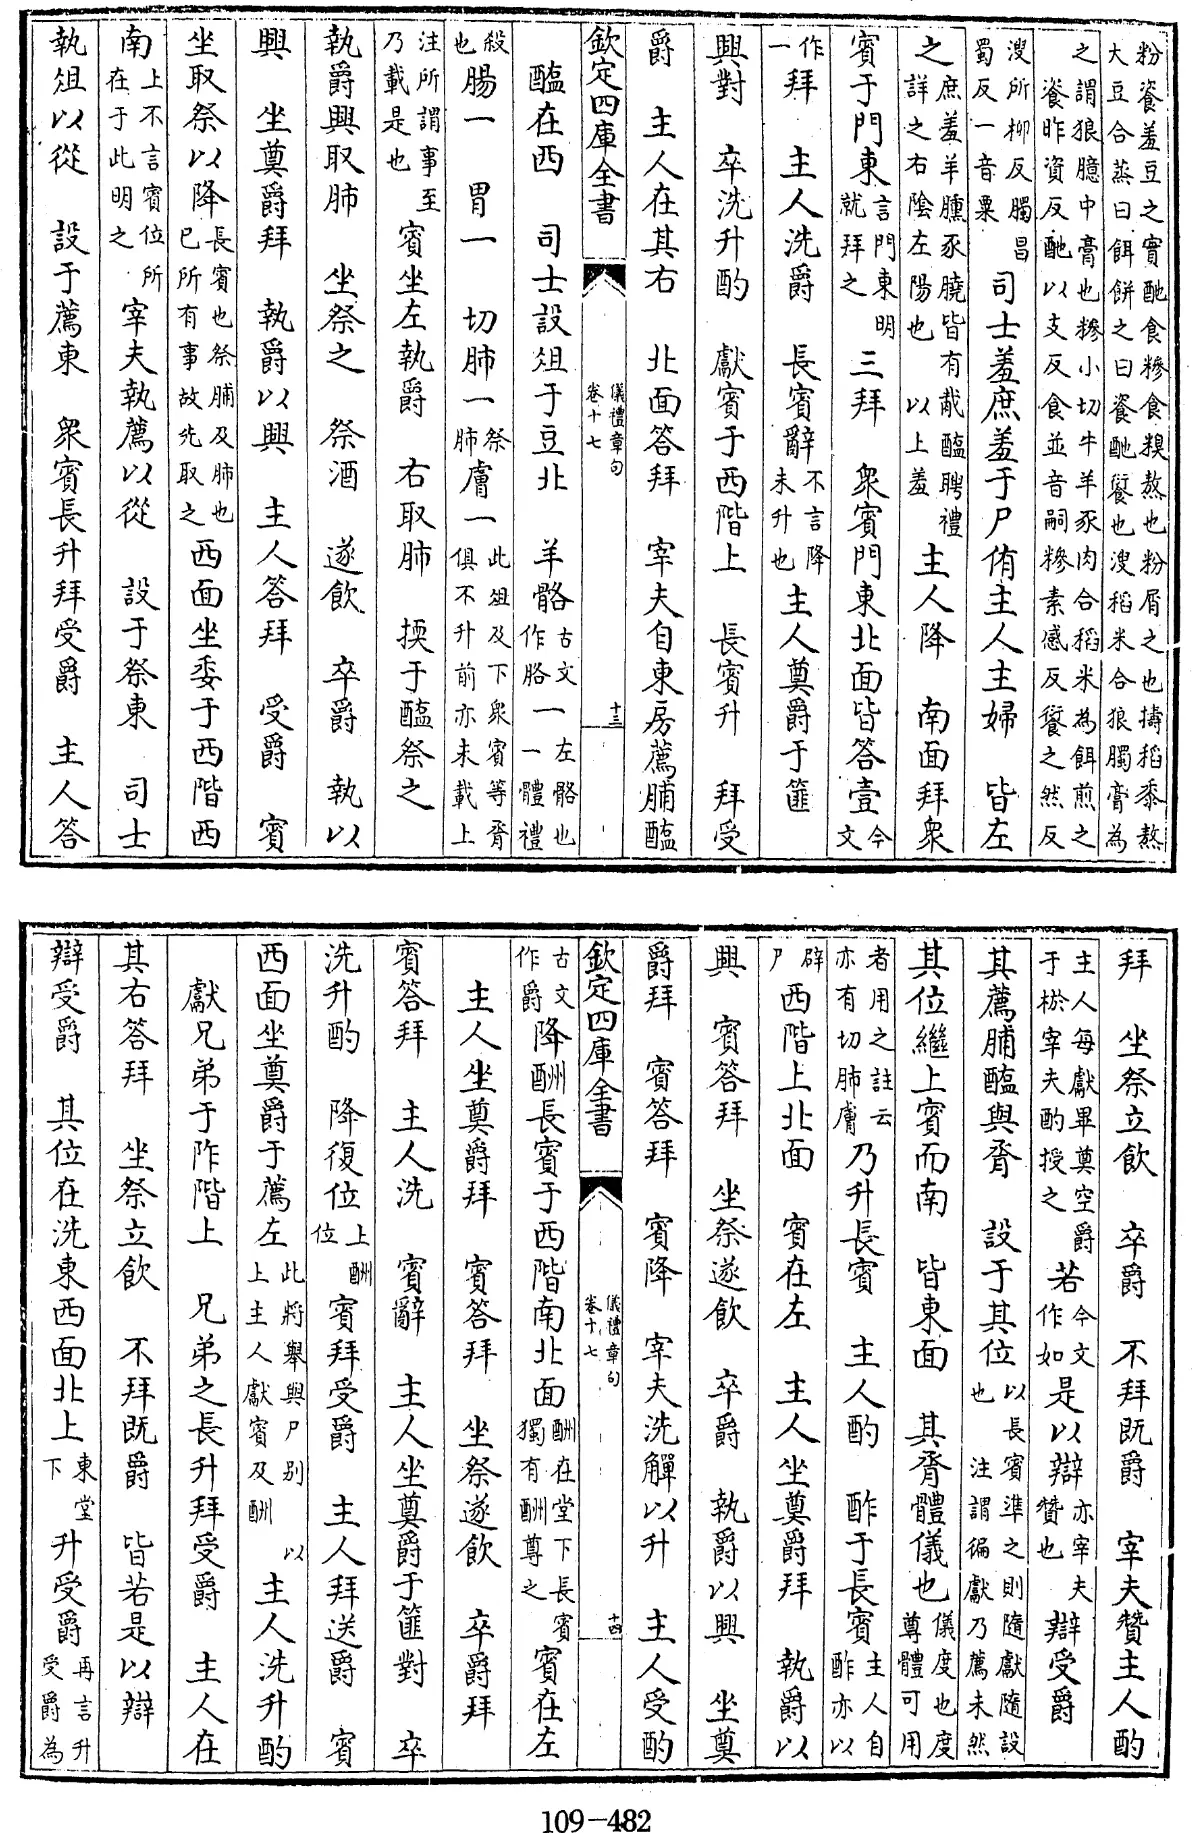 粉餈羞豆之實酏食糝食糗熬也粉屑之也擣稻黍熬
大豆合蒸曰餌餅之曰餈酏餰也溲稻米合狼臅膏為
之謂狼臆中膏也糝小切牛羊豕肉合稻米為餌煎之
餈昨資反酏以支反食並音嗣糝素感反餰之然反
溲所柳反臅昌蜀反一音粟司士羞庶羞于尸侑主人主婦　皆左
之庶羞羊臐豕膮皆有胾醢聘禮詳之右陰左陽也　以上羞主人降　南面拜衆
賓于門東言門東明就拜之三拜　衆賓門東北面皆答壹今文
作一拜　主人洗爵　長賓辭不言降未升也主人奠爵于篚
興對　卒洗升酌　獻賓于西階上　長賓升　拜受
爵　主人在其右　北面答拜　宰夫自東房薦脯醢
欽定四庫全書　儀禮章句卷十七　十三
醢在西　司士設俎于豆北　羊骼古文作胳一左骼也一體禮
殺也腸一　胃一　切肺一祭肺膚一此俎及下衆賓等脀俱不升前亦未載上
注所謂事至乃載是也賓坐左執爵　右取肺　擩于醢祭之
執爵興取肺　坐祭之　祭酒　遂飲　卒爵　執以
興　坐奠爵拜　執爵以興　主人答拜　受爵　賓
坐取祭以降長賓也祭脯及肺也已所有事故先取之西面坐委于西階西
南上不言賓位所在于此明之宰夫執薦以從　設于祭東　司士
執俎以從　設于薦東　衆賓長升拜受爵　主人答
拜　坐祭立飲　卒爵　不拜既爵　宰夫贊主人酌
主人每獻畢奠空爵于棜宰夫酌授之若今文作如是以辯亦宰夫贊也辯受爵
其薦脯醢與脀　設于其位以長賓準之則隨獻隨設也　注謂徧獻乃薦未然
其位繼上賓而南　皆東面　其脀體儀也儀度也度尊體可用
者用之註云亦有切肺膚乃升長賓　主人酌　酢于長賓主人自酢亦以
辟尸西階上北面　賓在左　主人坐奠爵拜　執爵以
興　賓答拜　坐祭遂飲　卒爵　執爵以興　坐奠
爵拜　賓答拜　賓降　宰夫洗觶以升　主人受酌
欽定四庫全書　儀禮章句卷十七　十四
古文作爵降酬長賓于西階南北面酬在堂下長賓獨有酬尊之賓在左
主人坐奠爵拜　賓答拜　坐祭遂飲　卒爵拜
賓答拜　主人洗　賓辭　主人坐奠爵于篚對　卒
洗升酌　降復位上酬位賓拜受爵　主人拜送爵　賓
西面坐奠爵于薦左此將舉與尸别　以上主人獻賓及酬主人洗升酌
獻兄弟于阼階上　兄弟之長升拜受爵　主人在
其右答拜　坐祭立飲　不拜既爵　皆若是以辯
辯受爵　其位在洗東西面北上東堂下升受爵再言升受爵為
109-482